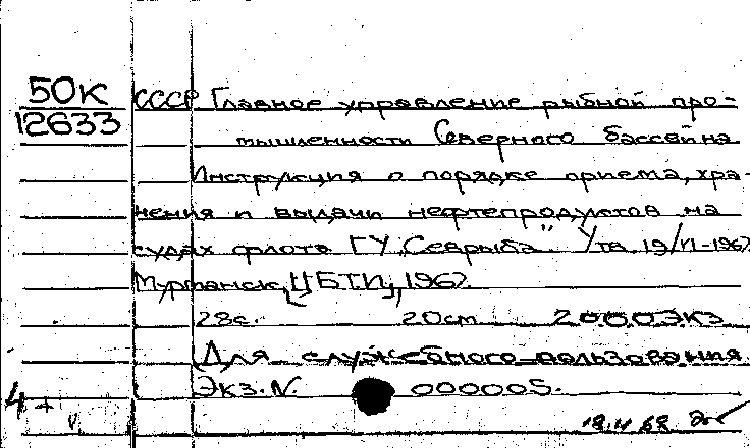 50к
12633
СССР Главное управление рыбной про-
мышленности Северного бассейна
Инструкция о порядке приема, хра-
нения и выдачи нефтепродуктов на
судах флота ГУ "Севрыба" Утв. 19/VI-1967
Мурманск, [ЦБТИ], 1967.
28с. 20см 2000 экз
(Для служебного пользования
Экз. N. 000005.
4 +
18.II.68